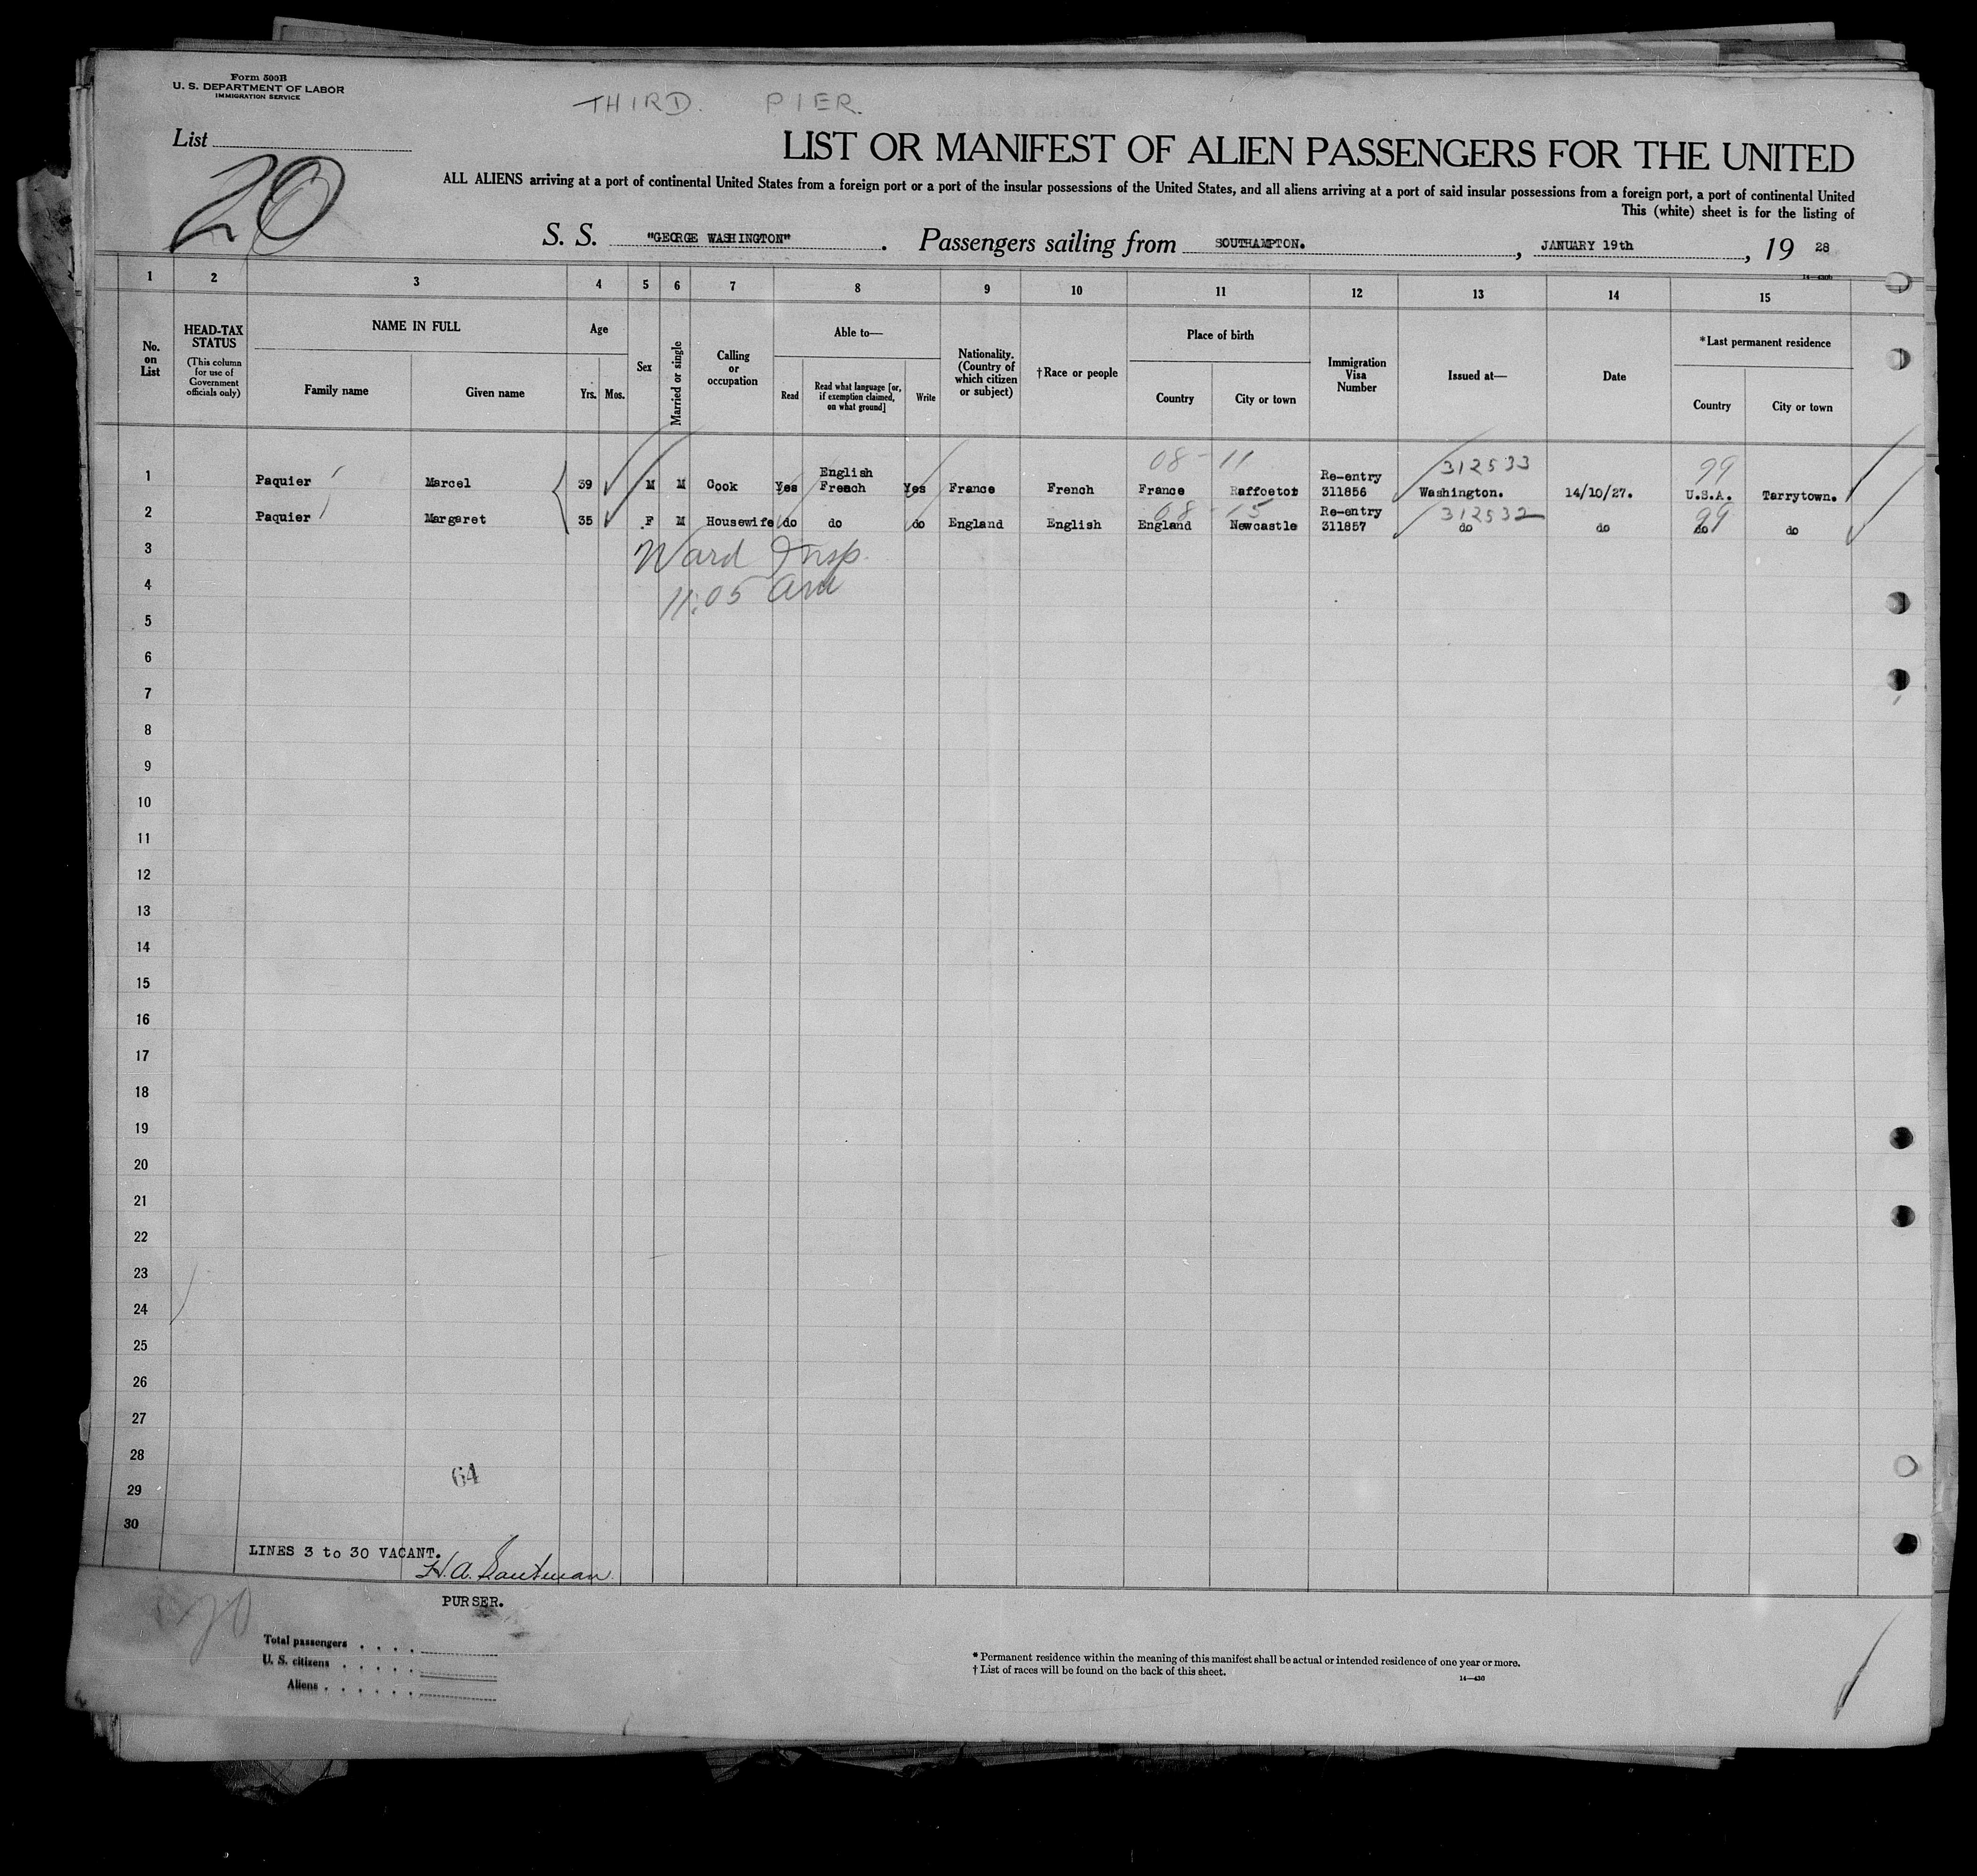 Form 500B
U. S. DEPARTMENT OF LABOR
IMMIGRATION SERVICE
THIRD. PIER.
List
20
LIST OR MANIFEST OF ALIEN PASSENGERS FOR THE UNITED
ALL ALIENS arriving at a port of continental United States from a foreign port or a port of the insular possessions of the United States, and all aliens arriving at a port of said insular possessions from a foreign port, a port of continental United
This (white) sheet is for the listing of
S. S. "GEORGE WASHINGTON". Passengers sailing from SOUTHAMPTON., JANUARY 19th, 19 28
1 2 3 4 5 6 7 8 9 10 11 12 13 14 15
No. on List
HEAD-TAX STATUS (This column for use of Government officials only)
NAME IN FULL
Family name Given name
Age
Yrs. Mos.
Sex
Married or single
Calling or occupation
Able to—
Read Read what language [or, if exemption claimed, on what ground] Write
Nationality. (Country of which citizen or subject)
†Race or people
Place of birth
Country City or town
Immigration Visa Number
Issued at—
Date
*Last permanent residence
Country City or town
08-11 312533 99
English Re-entry
1 Paquier Marcel 39 M M Cook Yes French Yes France French France Raffoetot 311856 Washington. 14/10/27. U.S.A. Tarrytown.
08-15 Re-entry 312532 99
2 Paquier Margaret 35 F M Housewife do do do England English England Newcastle 311857 do do do do
3
Ward Insp.
4
11:05 am
5
6
7
8
9
10
11
12
13
14
15
16
17
18
19
20
21
22
23
24
25
26
27
28
64
29
30
LINES 3 to 30 VACANT.
H.A.
PURSER.
20
Total passengers . . . .
U. S. citizens . . . . .
Aliens . . . . . .
* Permanent residence within the meaning of this manifest shall be actual or intended residence of one year or more.
† List of races will be found on the back of this sheet.
14—430